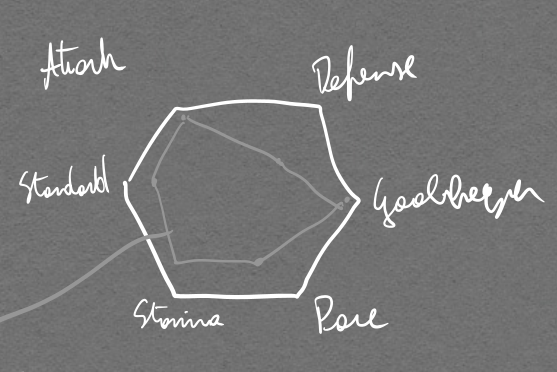 Attack
Defense
Standard
Goalkeeper
Stamina
Pace